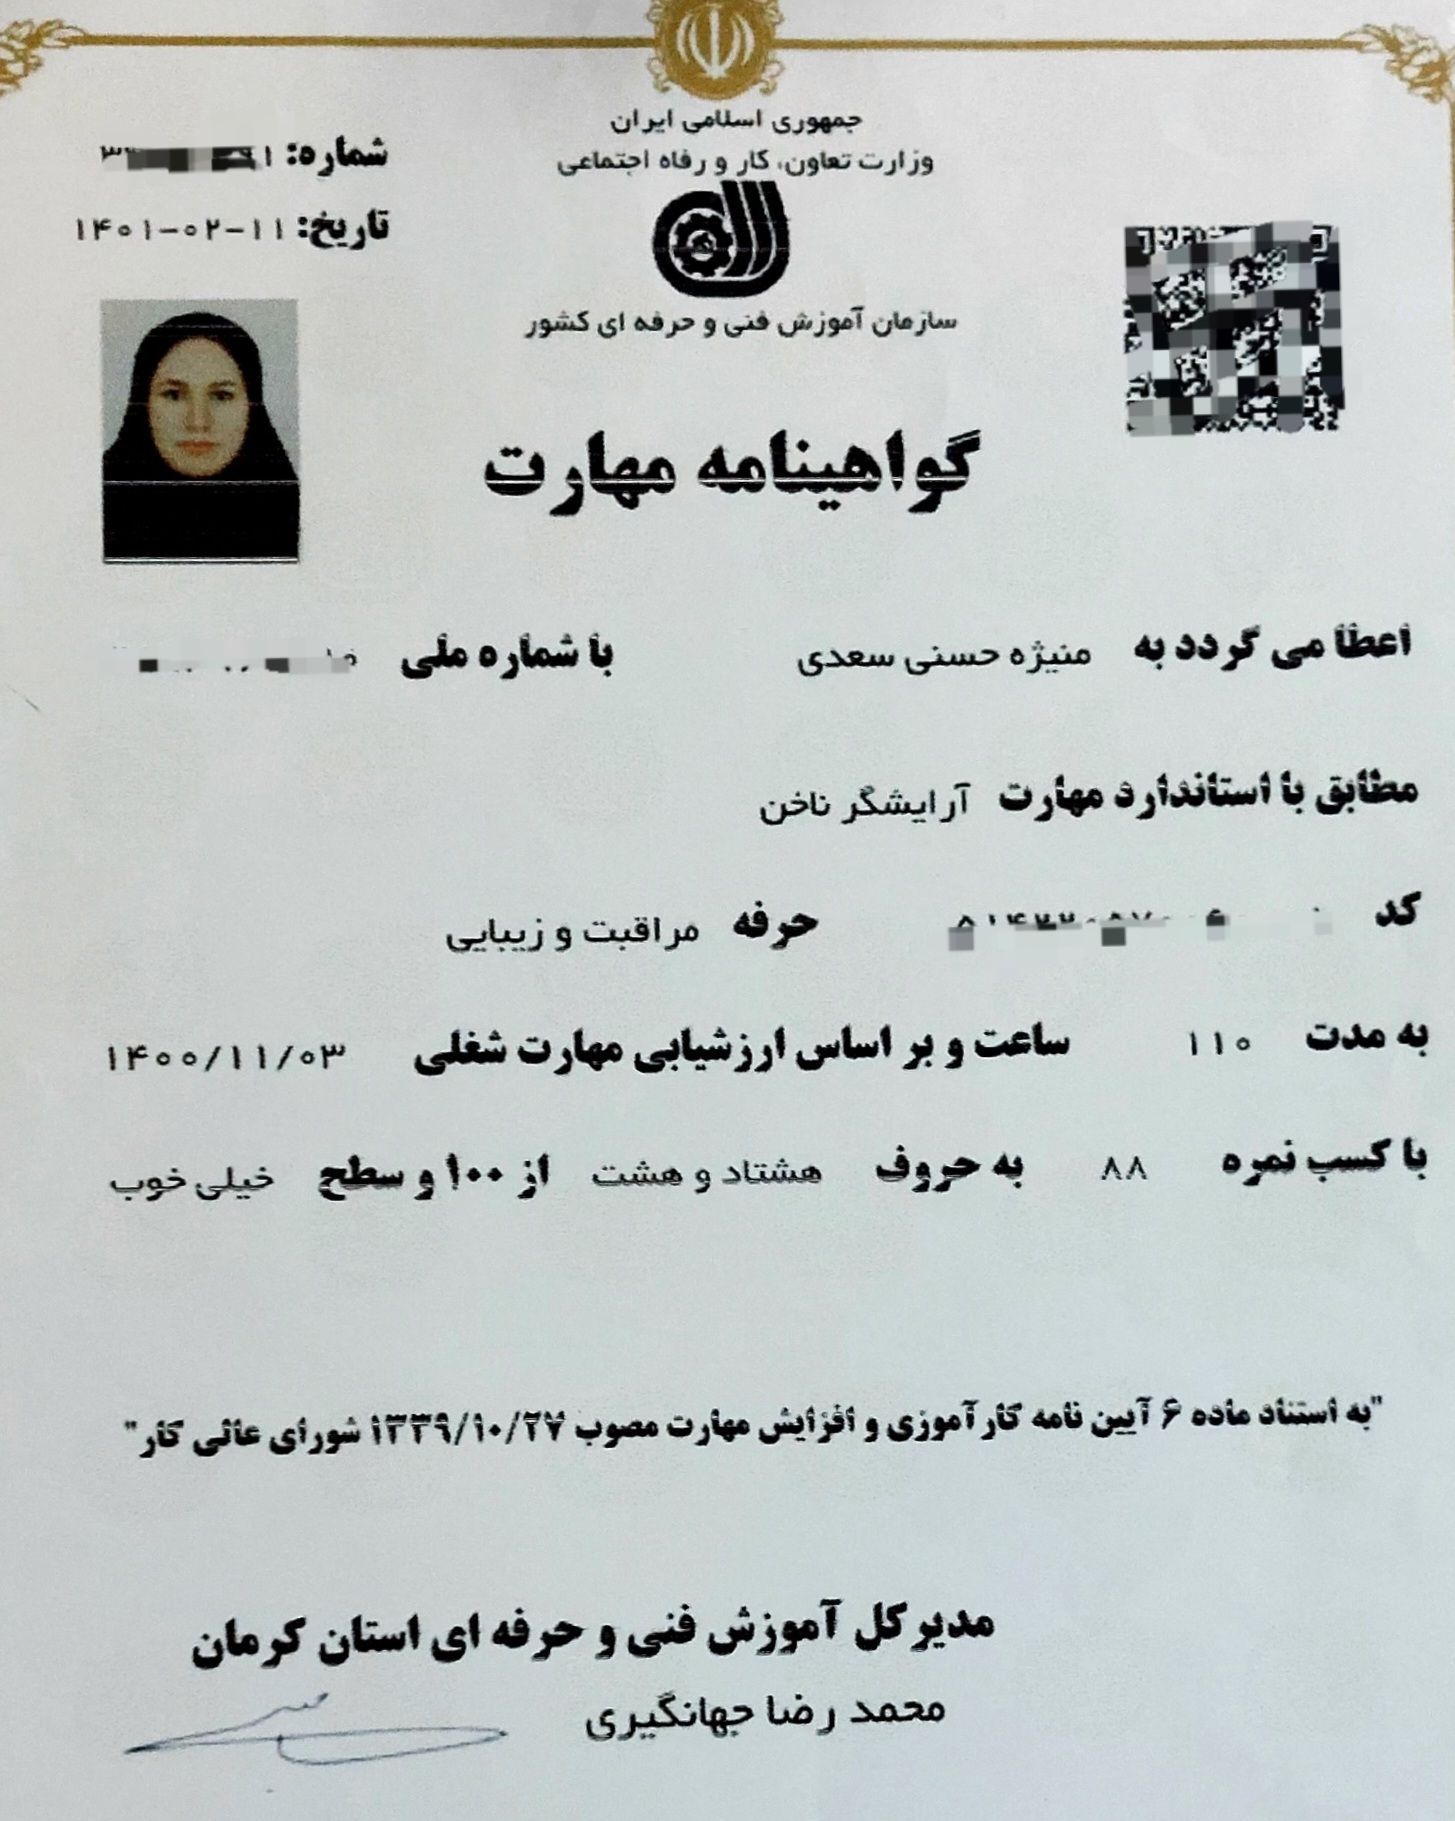 جمهوری اسلامی ایران
وزارت تعاون، کار و رفاه اجتماعی
شماره:
تاریخ: ۱۴۰۱-۰۲-۱۱
سازمان آموزش فنی و حرفه ای کشور
گواهینامه مهارت
اعطا می گردد به منیژه حسنی سعدی با شماره ملی
مطابق با استاندارد مهارت آرایشگر ناخن
کد حرفه مراقبت و زیبایی
به مدت ۱۱۰ ساعت و بر اساس ارزشیابی مهارت شغلی ۱۴۰۰/۱۱/۰۳
با کسب نمره ۸۸ به حروف هشتاد و هشت از ۱۰۰ و سطح خیلی خوب
"به استناد ماده ۶ آیین نامه کارآموزی و افزایش مهارت مصوب ۱۳۳۹/۱۰/۲۷ شورای عالی کار"
مدیرکل آموزش فنی و حرفه ای استان کرمان
محمد رضا جهانگیری